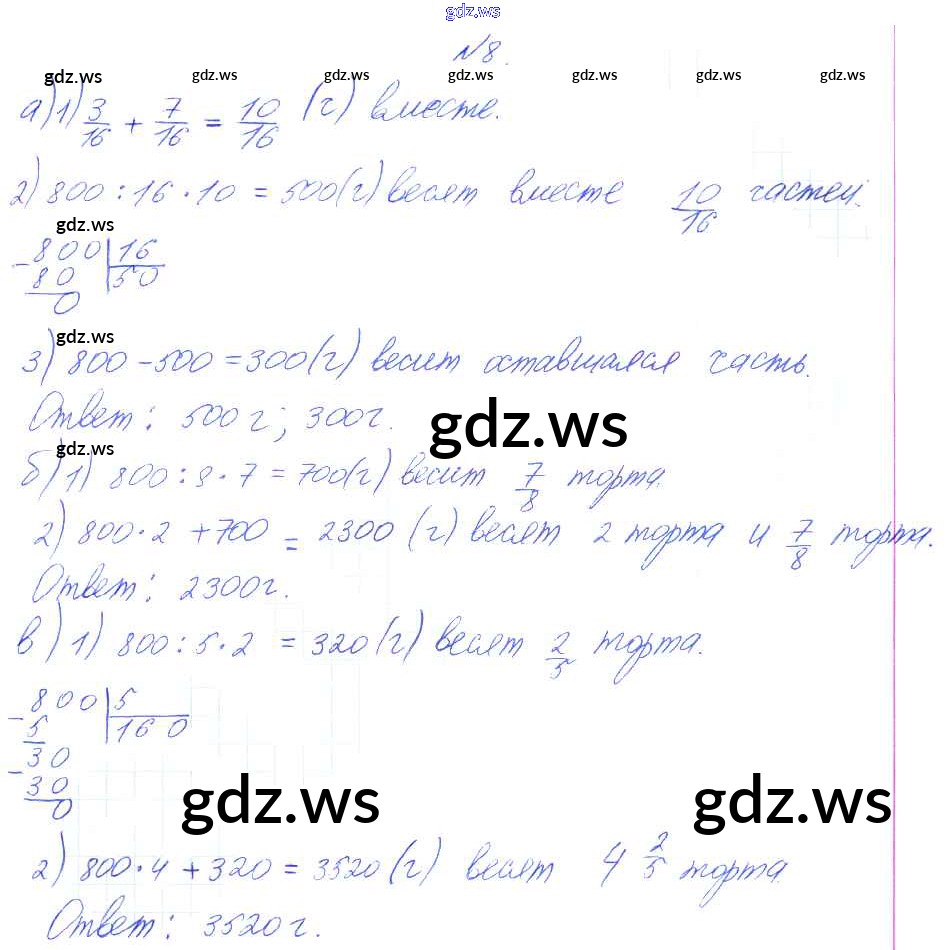 gdz.ws
№8.
gdz.ws gdz.ws gdz.ws gdz.ws gdz.ws gdz.ws
а) 1) 3/16 + 7/16 = 10/16 (г) вместе.
2) 800 : 16 · 10 = 500 (г) весят вместе 10/16 частей.
gdz.ws
- 800 | 16
80 | 50
0
gdz.ws
3) 800 - 500 = 300 (г) весит оставшаяся часть.
Ответ: 500 г; 300 г.
gdz.ws
gdz.ws
б) 1) 800 : 8 · 7 = 700 (г) весит 7/8 торта.
2) 800 · 2 + 700 = 2300 (г) весят 2 торта и 7/8 торта.
Ответ: 2300 г.
в) 1) 800 : 5 · 2 = 320 (г) весят 2/5 торта.
- 800 | 5
5 | 160
30
- 30
0
gdz.ws gdz.ws
2) 800 · 4 + 320 = 3520 (г) весят 4 2/5 торта
Ответ: 3520 г.